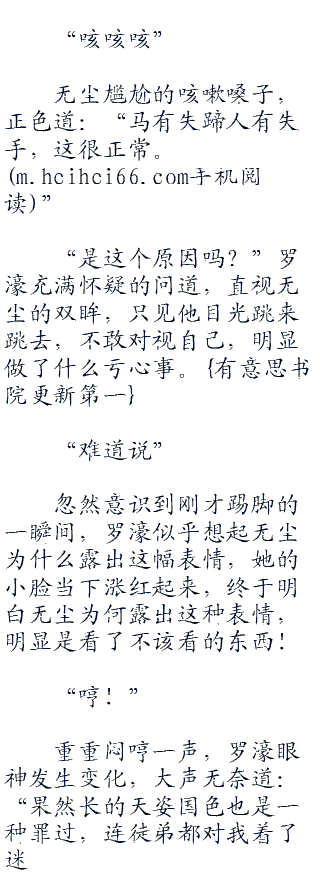 “咳咳咳”
无尘尴尬的咳嗽嗓子，
正色道：“马有失蹄人有失
手，这很正常。
(m.hcihci66.com手机阅
读)”
“是这个原因吗？”罗
濠充满怀疑的问道，直视无
尘的双眸，只见他目光跳来
跳去，不敢对视自己，明显
做了什么亏心事。{有意思书
院更新第一}
“难道说”
忽然意识到刚才踢脚的
一瞬间，罗濠似乎想起无尘
为什么露出这幅表情，她的
小脸当下涨红起来，终于明
白无尘为何露出这种表情，
明显是看了不该看的东西！
“哼！”
重重闷哼一声，罗濠眼
神发生变化，大声无奈道：
“果然长的天姿国色也是一
种罪过，连徒弟都对我着了
迷